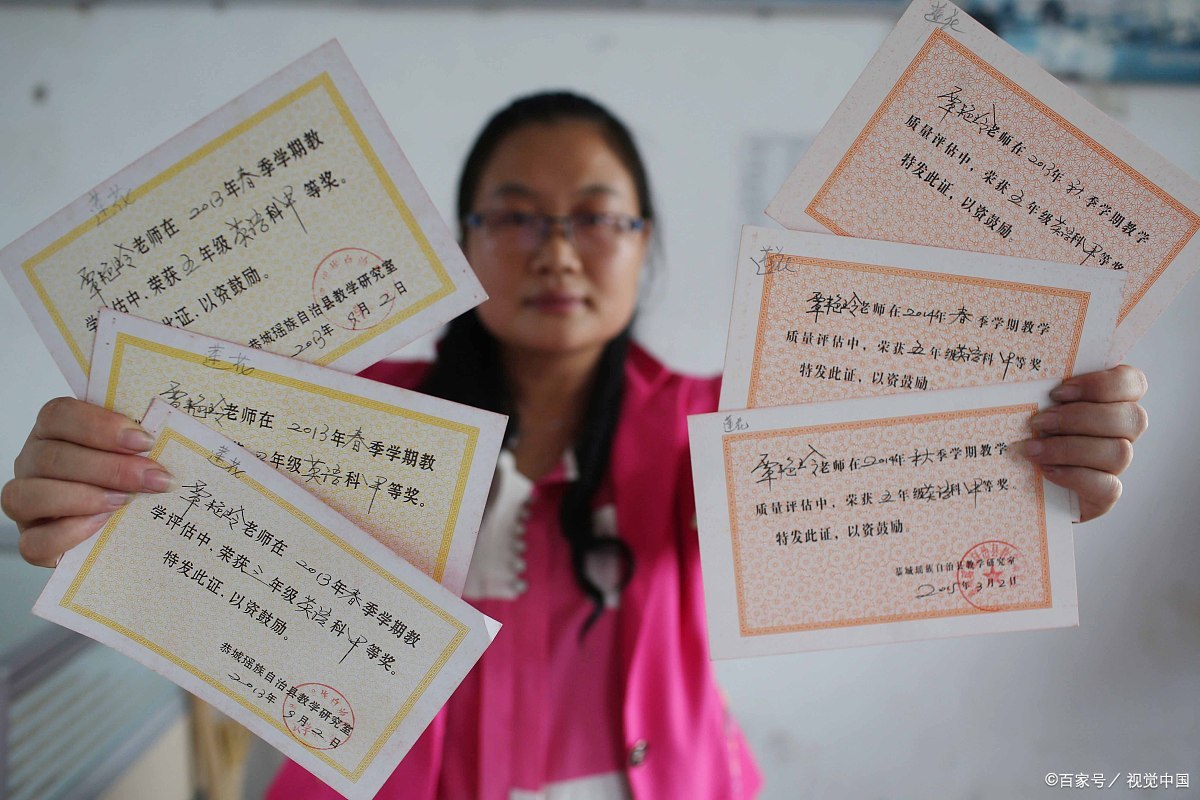 莲花
覃艳玲老师在 2013年春季学期教
学评估中,荣获五年级英语科甲等奖。
此证,以资鼓励。
恭城瑶族自治县教学研究室
2013年9月2日
莲花
覃艳玲老师在 2013年春季学期教
年级英语科甲等奖。
莲花
覃艳玲老师在 2013年春季学期教
学评估中,荣获三年级英语科甲等奖。
特发此证,以资鼓励。
恭城瑶族自治县教学研究室
2013年9月2日
莲花
覃艳玲老师在2013年秋季学期教学
质量评估中,荣获五年级英语科甲等
特发此证,以资鼓励。
莲花
覃艳玲老师在2014年春季学期教学
质量评估中,荣获五年级英语科甲等奖
特发此证,以资鼓励
莲花
覃艳玲老师在2014年秋季学期教学
质量评估中,荣获五年级英语科甲等奖。
特发此证,以资鼓励
恭城瑶族自治县教学研究室
2015年3月2日
©百家号/视觉中国